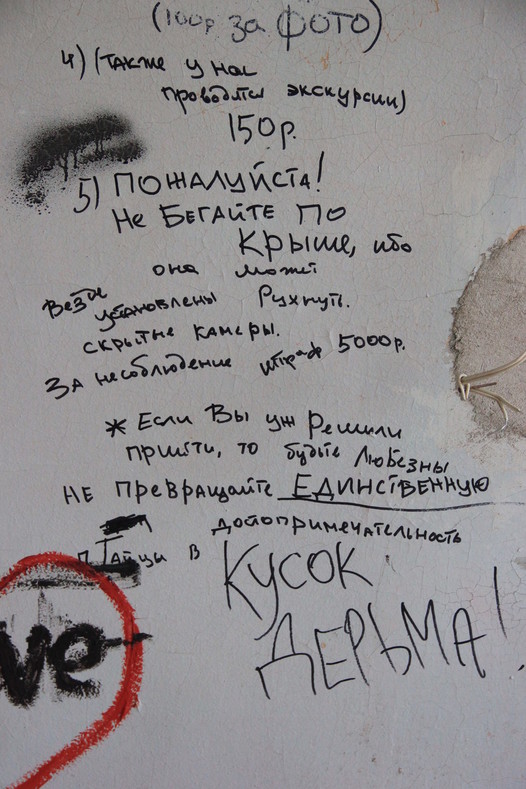 (100р за ФОТО)
4) (также у нас
проводятся экскурсии)
150р.
5) ПОЖАЛУЙСТА!
Не БЕГАЙТЕ ПО
Крыше, ибо
она может
Рухнуть.
Везде установлены
скрытые камеры.
За несоблюдение штраф 5000р.
* Если Вы уж Решили
прийти, то будьте Любезны
НЕ Превращайте ЕДИНСТВЕННУЮ
достопримечательность
в
КУСОК
ДЕРЬМА!
ve